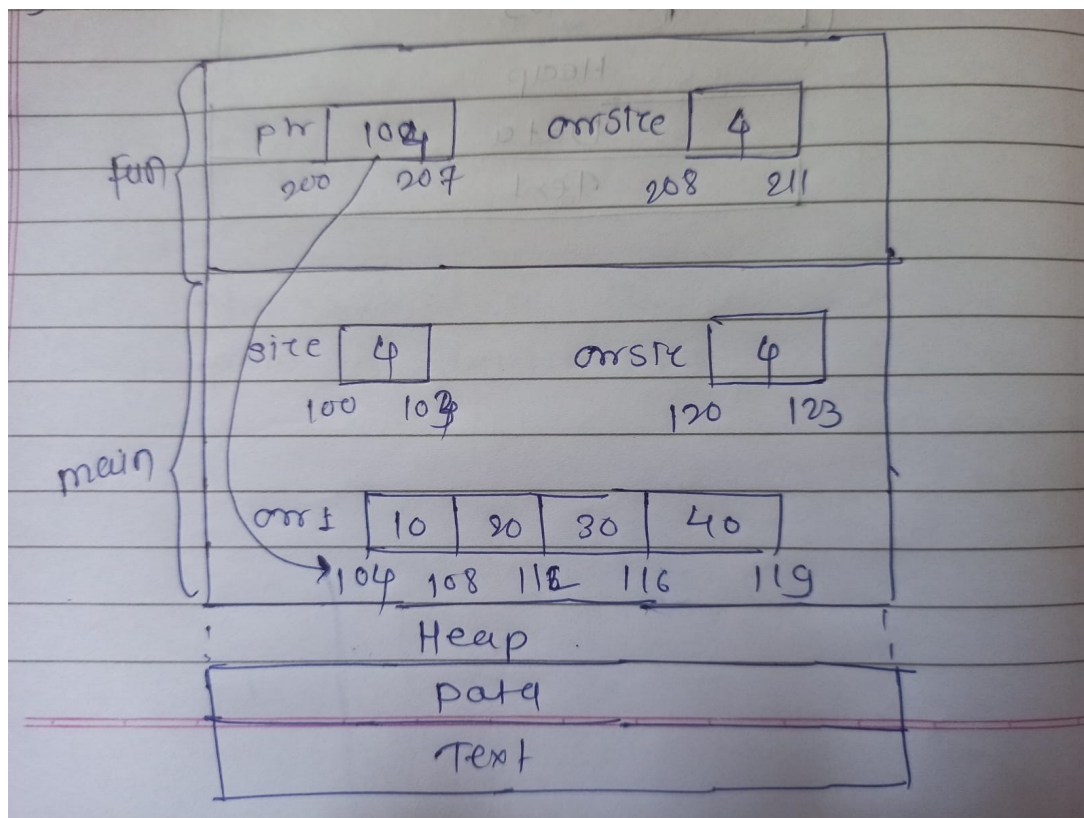 ptr 104 arrsize 4
fun
200 207 208 211
size 4 arrsize 4
100 103 120 123
main
arr1 10 20 30 40
104 108 112 116 119
Heap
Data
Text